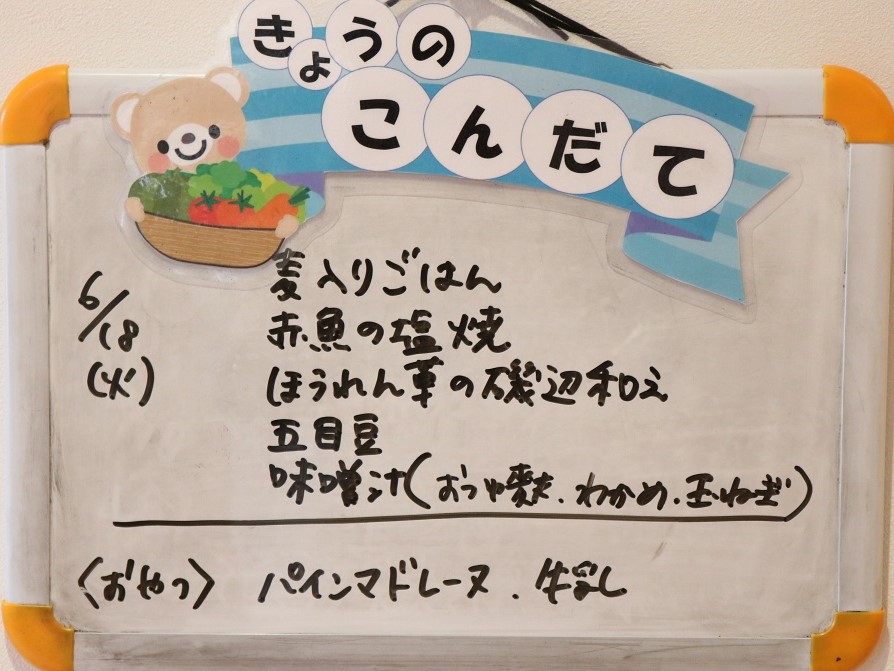 きょうの
こんだて
6/18
(火)
麦入りごはん
赤魚の塩焼
ほうれん草の磯辺和え
五目豆
味噌汁(おつゆ麩.わかめ.玉ねぎ)
〈おやつ〉 パインマドレーヌ.牛乳